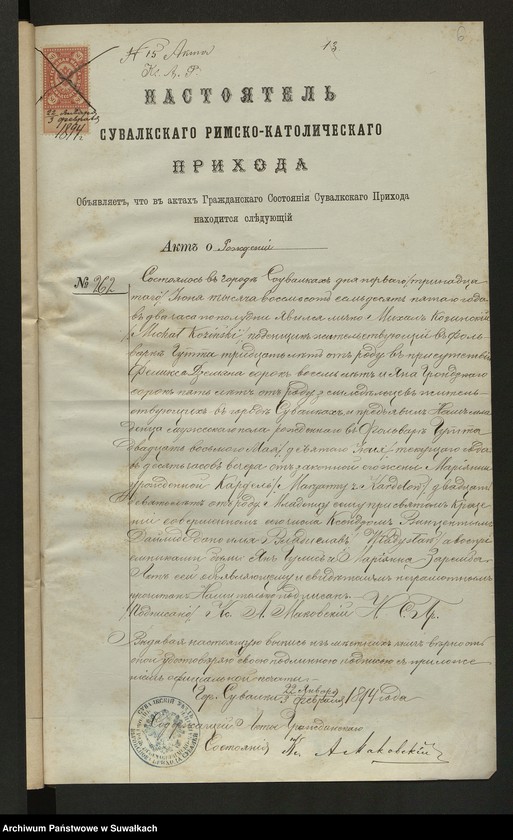 13
6
№ 15 Акта
Кс. А. Р.
22 Января
3 февраля
1894 г.
НАСТОЯТЕЛЬ
СУВАЛКСКАГО РИМСКО-КАТОЛИЧЕСКАГО
ПРИХОДА
Объявляетъ, что въ актахъ Гражданскаго Состоянія Сувалкскаго Прихода
находится слѣдующій
Актъ о Рожденій
№ 262
Состоялось въ городѣ Сувалкахъ дня перваго /тринадца
таго/ Іюня тысяча восемьсотъ семьдесятъ пятаго года
въ два часа по полудни явился лично Михалъ Козинскій
/Michał Koziński/ поденщикъ жительствующій въ Фоль
варкѣ тридцать лѣтъ отъ роду въ присутствіи
Феликса сорокъ восемь лѣтъ и Яна
сорокъ пять лѣтъ отъ роду, житель
ствующихъ въ городѣ Сувалкахъ, и предъявилъ Намъ мла
денца мужескаго пола рожденнаго въ Фольваркѣ
двадцать восьмого Мая /девятаго Іюня/ текущаго года
въ десять часовъ вечера отъ законной его жены Маріянны
урожденной Кардель /Maryanny z Kardelów/ двадцати
девяти лѣтъ отъ роду. Младенцу сему при святомъ Креще
ніи совершенномъ сего числа Ксендзомъ Винцентымъ
дано имя Владиславъ /Władysław/ а воспри
емниками были Янъ и Маріянна
Актъ сей объявляющему и свидѣтелямъ неграмотнымъ
прочитанъ Нами только подписанъ.
/Подписано/ Кс. А. Маковскій Н. С. Пр.
Выдавая настоящую выпись изъ метескихъ книгъ вѣрность
оной удостовѣряю своею подлинною подписью съ приложе
ніемъ официальной печати.
Гор. Сувалки 22 Января / 3 февраля 1894 года
Содержащій Акты Гражданскаго
Состоянія Кс. А. Маковскій
Archiwum Państwowe w Suwałkach